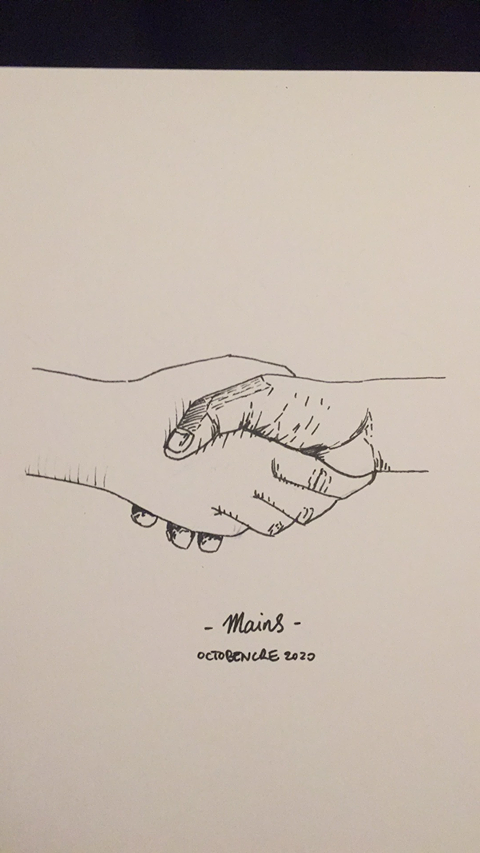 - Mains -
OCTOBENCRE 2020